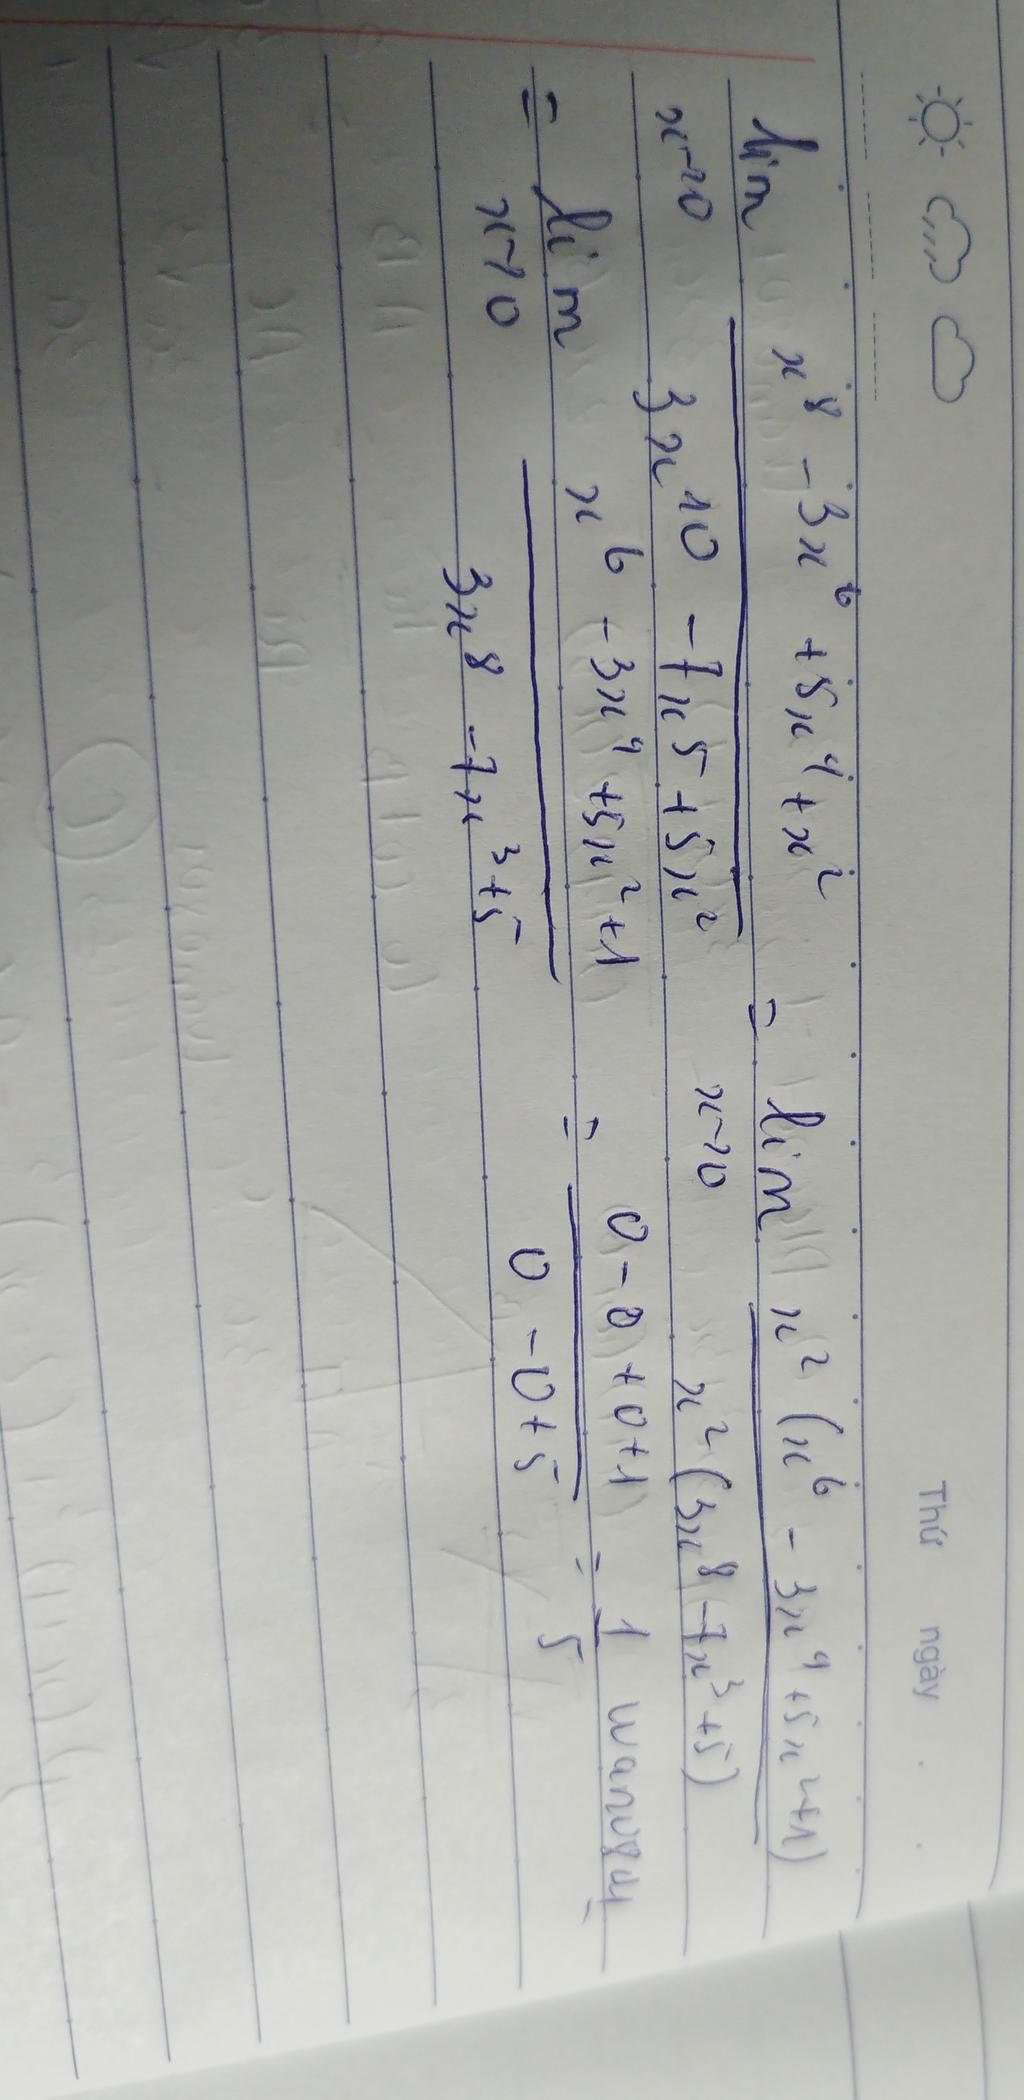 Thứ ngày . .
lim x→0 (x⁸ - 3x⁶ + 5x⁴ + x²) / (3x¹⁰ - 7x⁵ + 5x²) = lim x→0 x² (x⁶ - 3x⁴ + 5x² + 1) / x² (3x⁸ - 7x³ + 5)
= lim x→0 (x⁶ - 3x⁴ + 5x² + 1) / (3x⁸ - 7x³ + 5) = (0 - 0 + 0 + 1) / (0 - 0 + 5) = 1/5